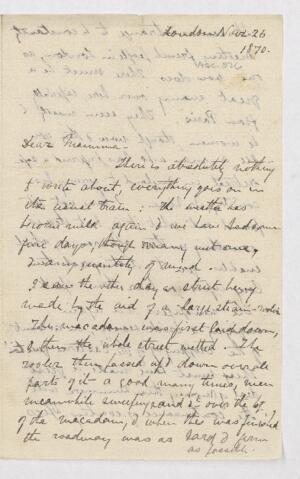 London Nov. 26
1870.
Dear Mamma
There is absolutely nothing
to write about, everything goes on in
its usual train: the weather has
become mild again & we have had some
fine days, though many wet ones,
quantity of mud.
I saw the other day a street being
made by the aid of a large steam-roller
The macadam was first laid down,
& then the whole street wetted. The
roller then passed up & down over
parts of it a good many times, men
meanwhile sweeping over the top
of the macadam, & when this was finished
the roadway was as hard & firm
as possible.